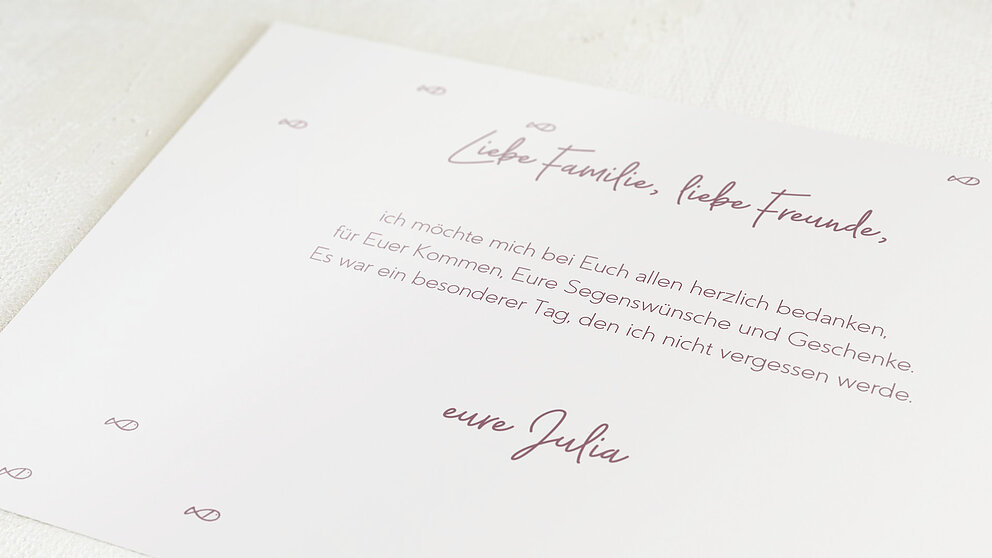 Liebe Familie, liebe Freunde,
ich möchte mich bei Euch allen herzlich bedanken,
für Euer Kommen, Eure Segenswünsche und Geschenke.
Es war ein besonderer Tag, den ich nicht vergessen werde.
eure Julia